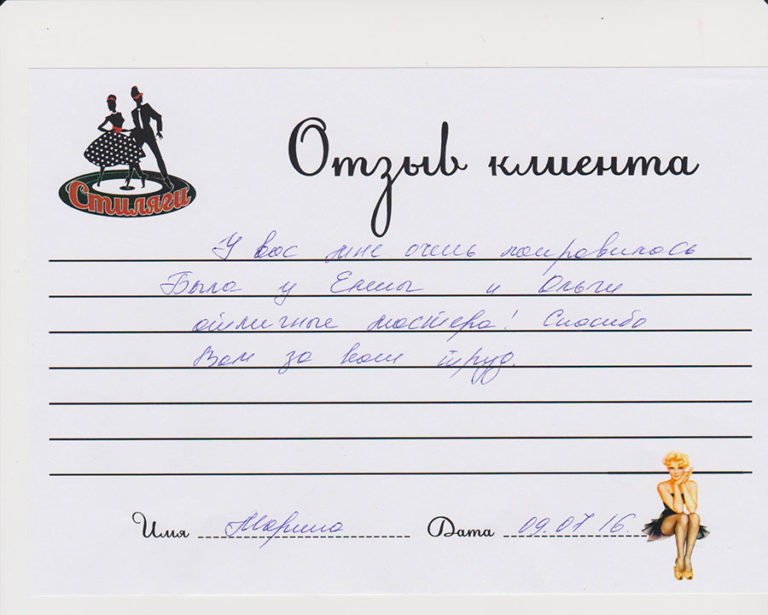 Стиляги
Отзыв клиента
У вас мне очень понравилось
Была у Елены и Ольги
отличные мастера! Спасибо
Вам за ваш труд.
Имя Марина Дата 09.07 16.